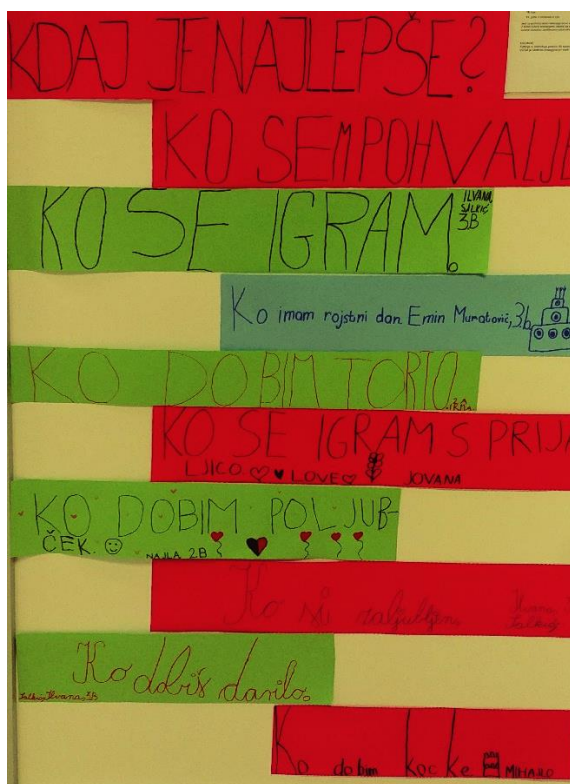 KDAJ JE NAJLEPŠE?
KO SEM POHVALJE
KO SE IGRAM.
ILVANA
3.B
Ko imam rojstni dan Emin Muratović, 3.b
KO DOBIM TORTO.
2.A
KO SE IGRAM S PRIJA
LJICO. LOVE JOVANA
KO DOBIM POLJUB-
ČEK. NAJLA 2.B
Ko si zaljubljen.
Ko dobiš darilo.
Ilvana, 3.B
Ko dobim kocke MIHAJLO